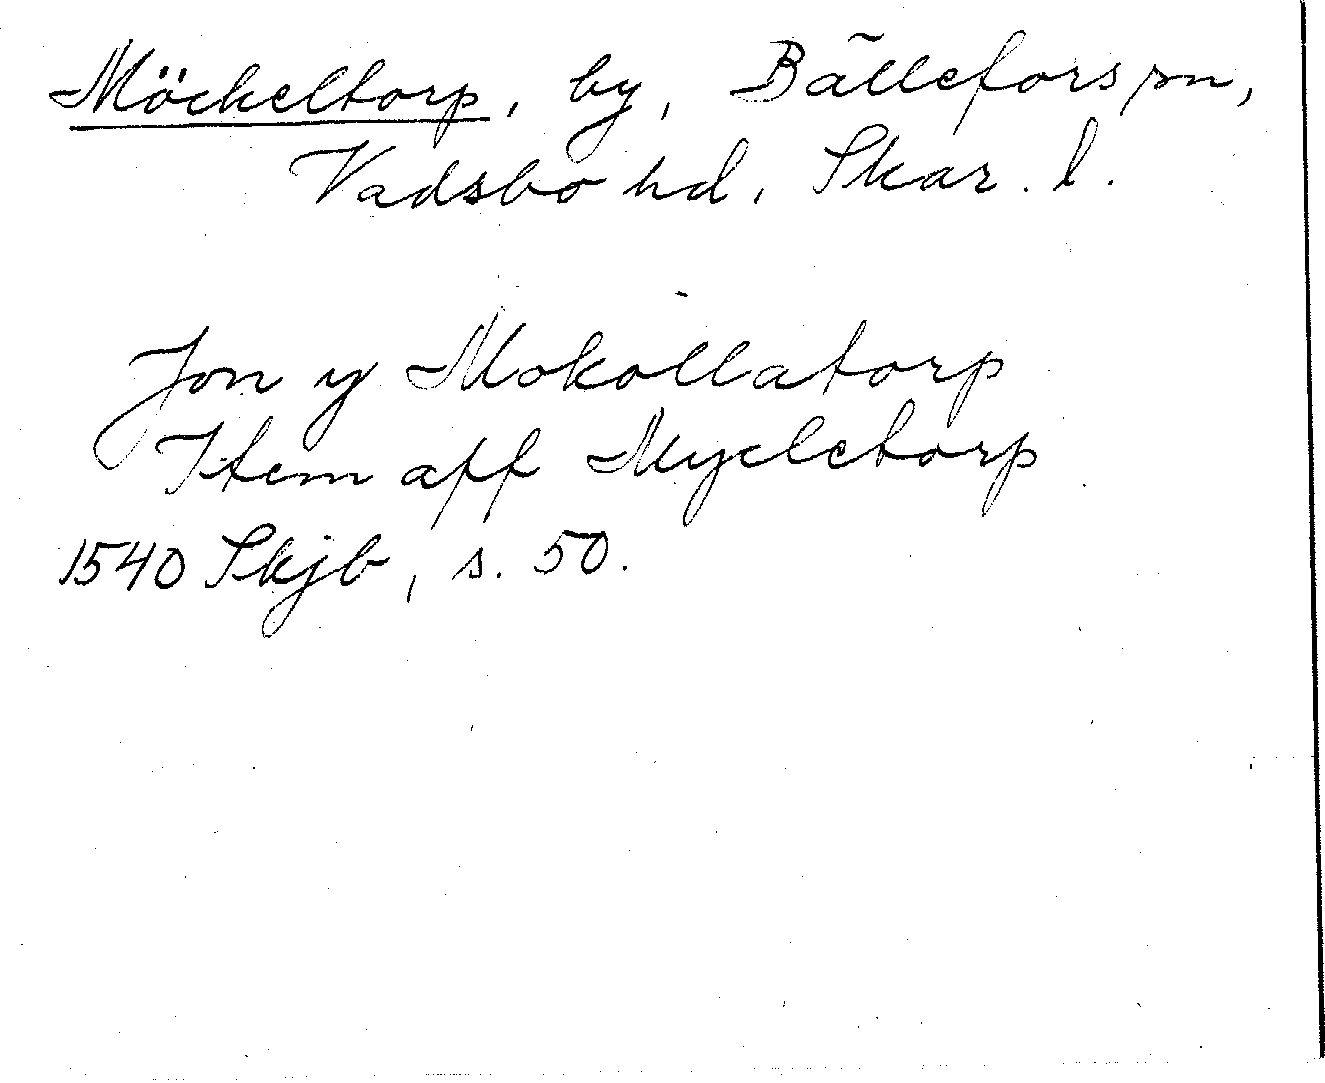 Möckeltorp, by, Bällefors sn,
Vadsbo hd, Skar. l.
Jon y Mokollatorp
Item aff Mycletorp
1540 Skjb, s. 50.